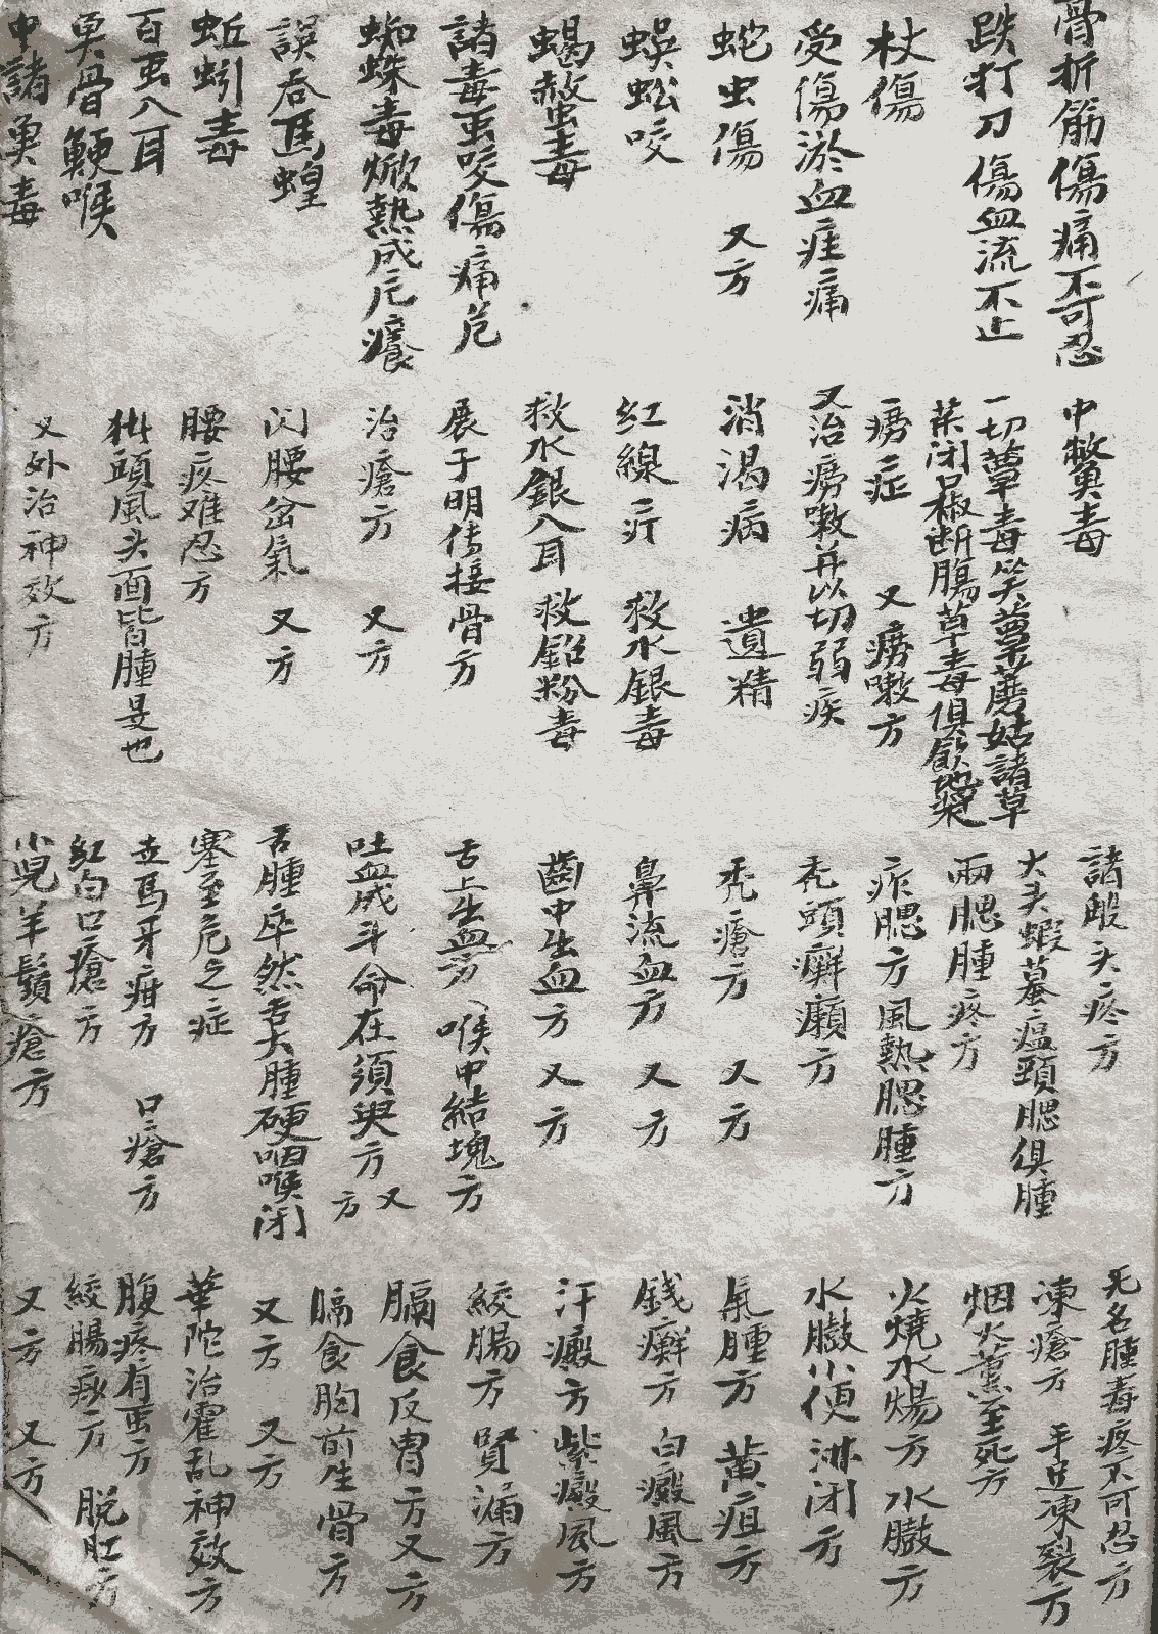 骨折筋傷痛不可忍
跌打刀傷血流不止
杖傷
受傷淤血疰痛
蛇虫傷 又方
蜈蚣咬
蝎螫毒
諸毒虫咬傷痛危
蜘蛛毒焮熱成厄癢
誤吞馬蝗
蚯蚓毒
百虫入耳
臭骨鯁喉
中諸臭毒
中鱉毒
一切蕈毒笑蕈蘑菇諸草
菜闭口椒断腸草毒俱飲地漿
癆症 又癆嗽方
又治癆嗽并以切弱疾
消渴病 遺精
紅線疔 救水銀毒
救水銀入耳 救鉛粉毒
展于明传接骨方
治瘡方 又方
闪腰岔氣 又方
腰疼难忍方
頭風头面皆腫是也
又外治神效方
諸般头疼方
大头蝦蟇瘟頸腮俱腫
兩腮腫疼方
痄腮方 風熱腮腫方
禿頭癬癩方
禿瘡方 又方
鼻流血方 又方
齒中生血方 又方
舌上生血方 喉中結塊方
吐血成斗命在須臾方 又方
舌腫卒然舌大腫硬咽喉闭
塞至危之症
並馬牙疳方 口瘡方
紅白口瘡方
小児羊鬚瘡方
无名腫毒疼不可忍方
凍瘡方 手足凍裂方
烟火薰至死方
火燒水燙方 水臌方
水臌小便淋闭方
氣腫方 黄疸方
錢癬方 白癜風方
汗癜方 紫癜風方
絞腸方 腎漏方
膈食反胃方 又方
膈食胸前生骨方
又方 又方
華陀治霍乱神效方
腹疼有虫方
絞腸痧方 脱肛方
又方 又方